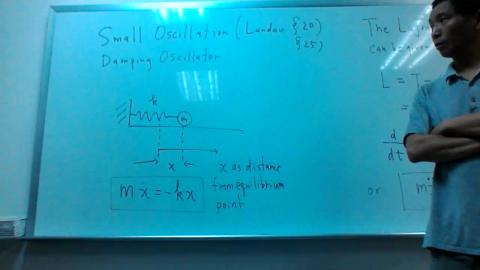 Small Oscillation (Landau § 20)
§ 25)
Damping Oscillator
k
m
x
x as distance
from equilibrium
point
m ẍ = -k x
The L
can b
L = T -
=
d
dt
or